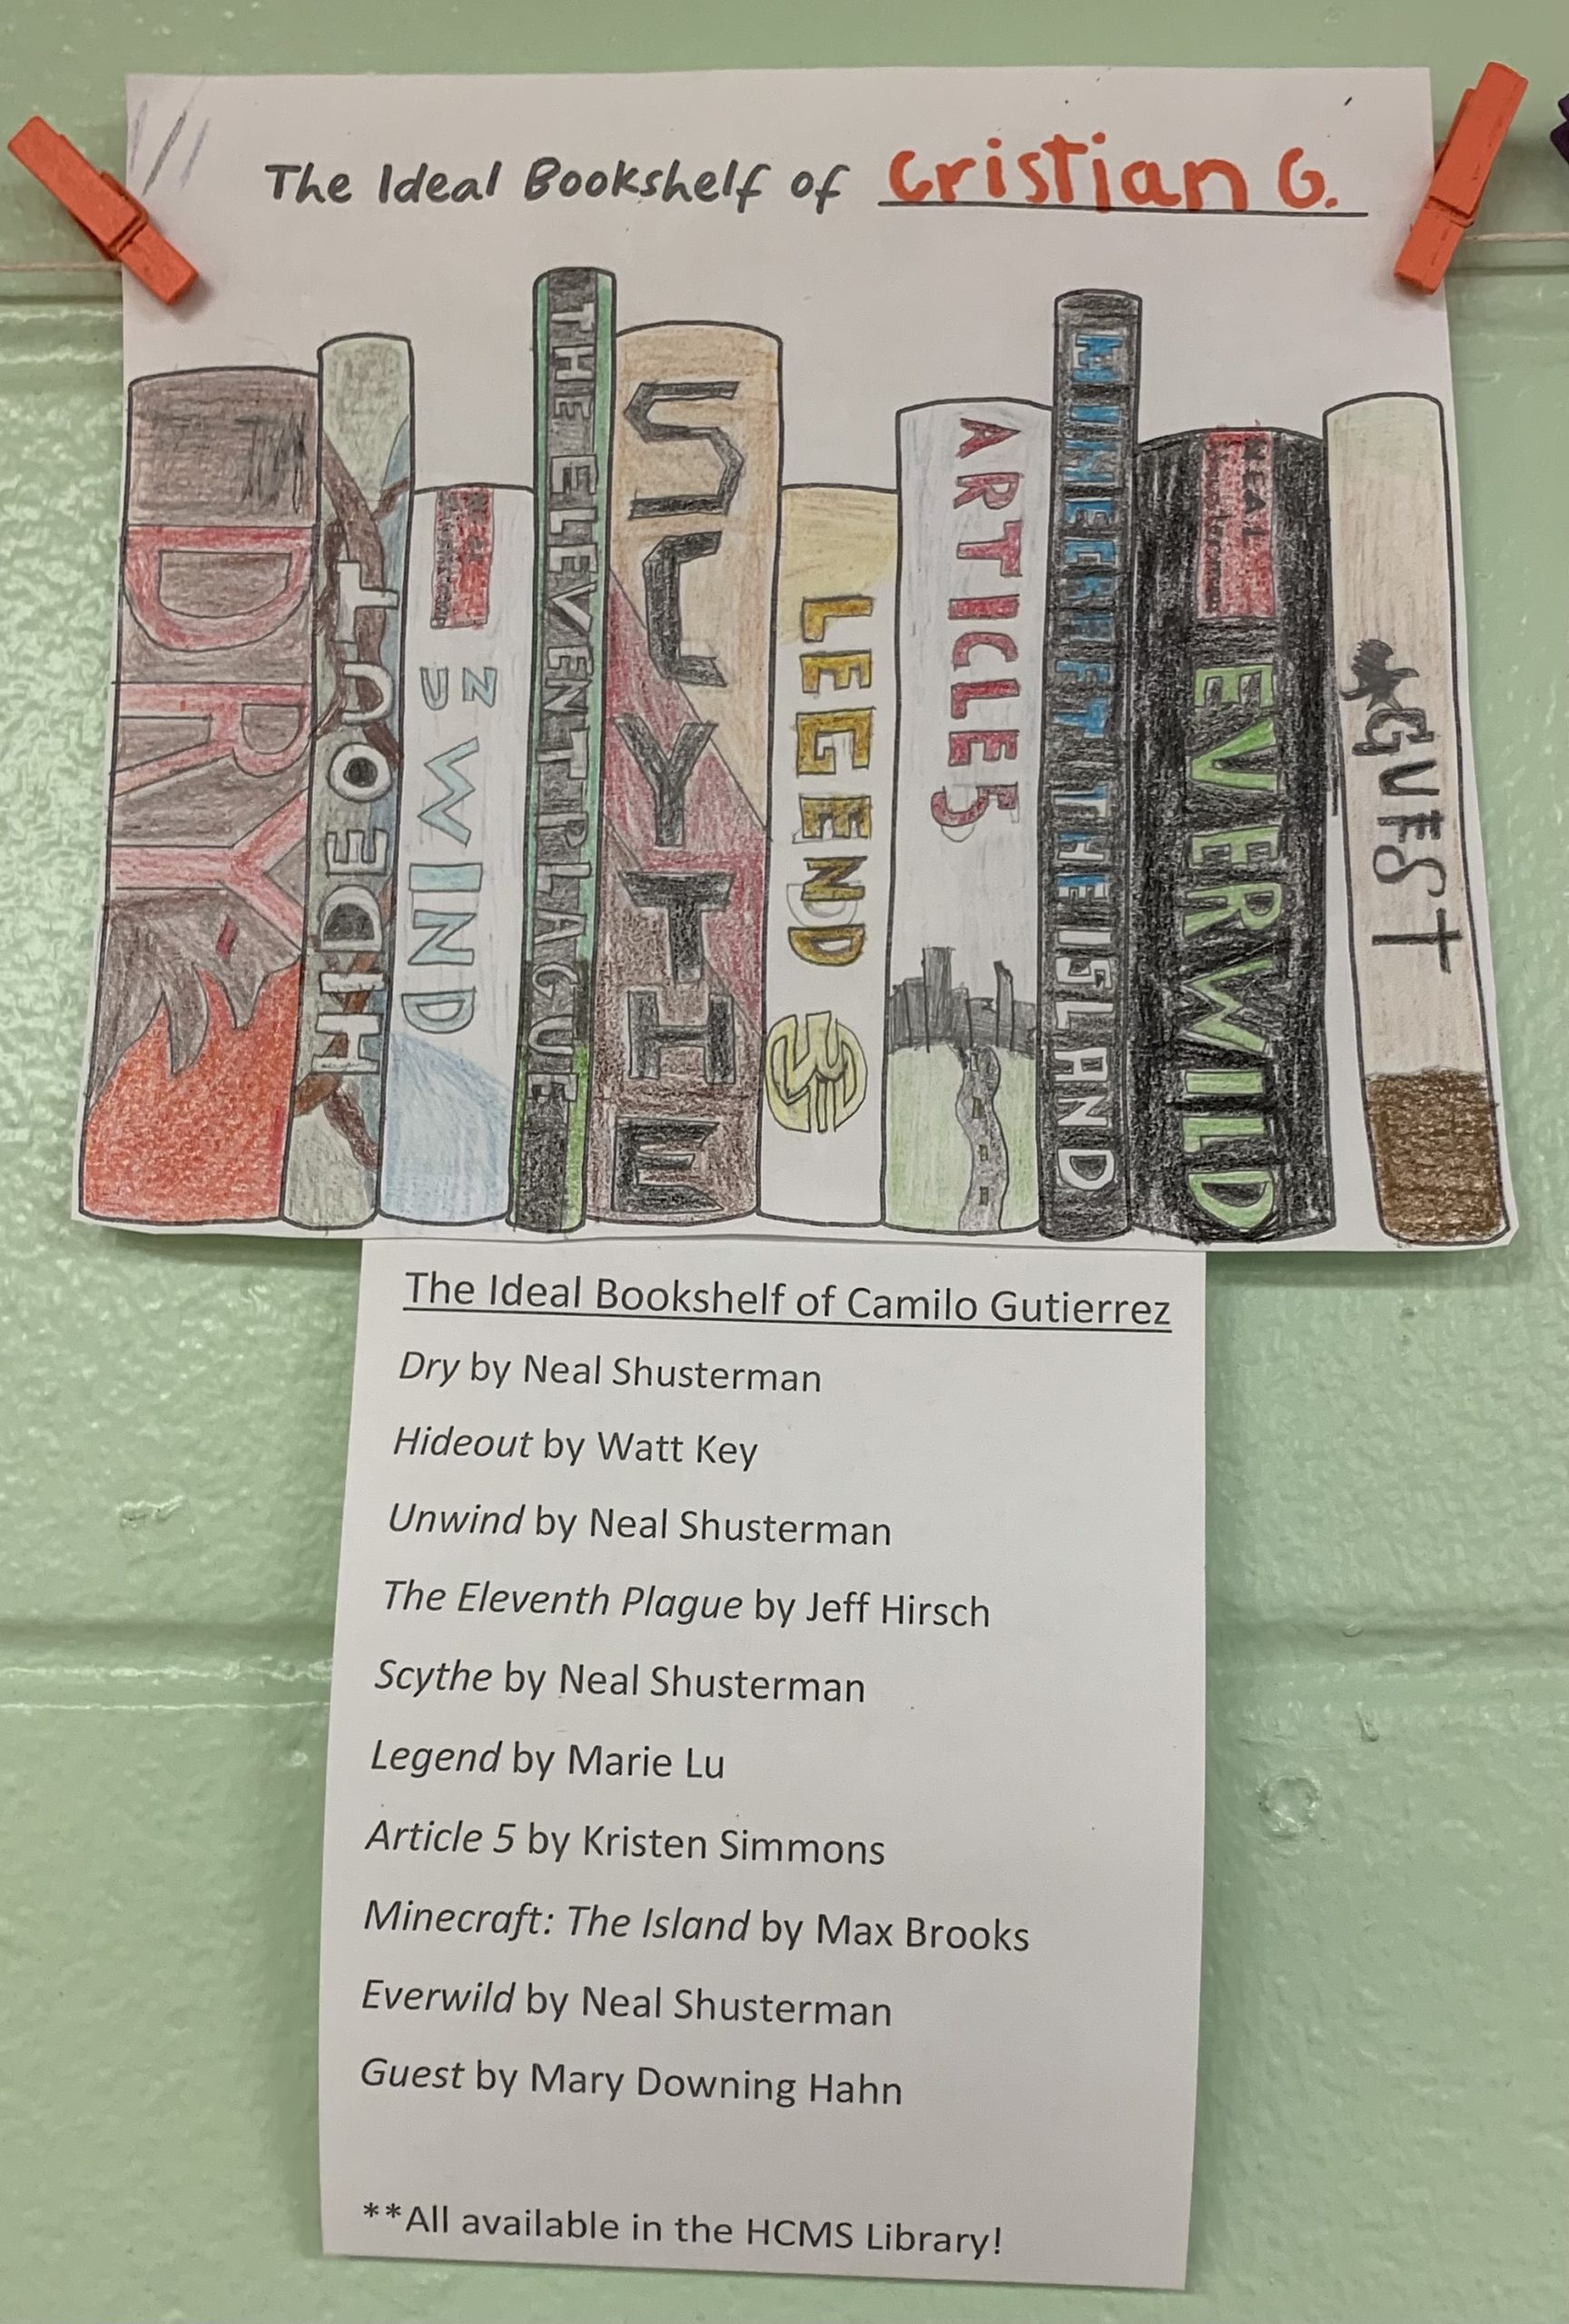 The Ideal Bookshelf of Cristian G.
DRY
HIDEOUT
UN WIND
THE ELEVENTH PLAGUE
SCYTHE
LEGEND
ARTICLE 5
MINECRAFT THE ISLAND
NEAL
EVERWILD
GUEST
The Ideal Bookshelf of Camilo Gutierrez
Dry by Neal Shusterman
Hideout by Watt Key
Unwind by Neal Shusterman
The Eleventh Plague by Jeff Hirsch
Scythe by Neal Shusterman
Legend by Marie Lu
Article 5 by Kristen Simmons
Minecraft: The Island by Max Brooks
Everwild by Neal Shusterman
Guest by Mary Downing Hahn
**All available in the HCMS Library!